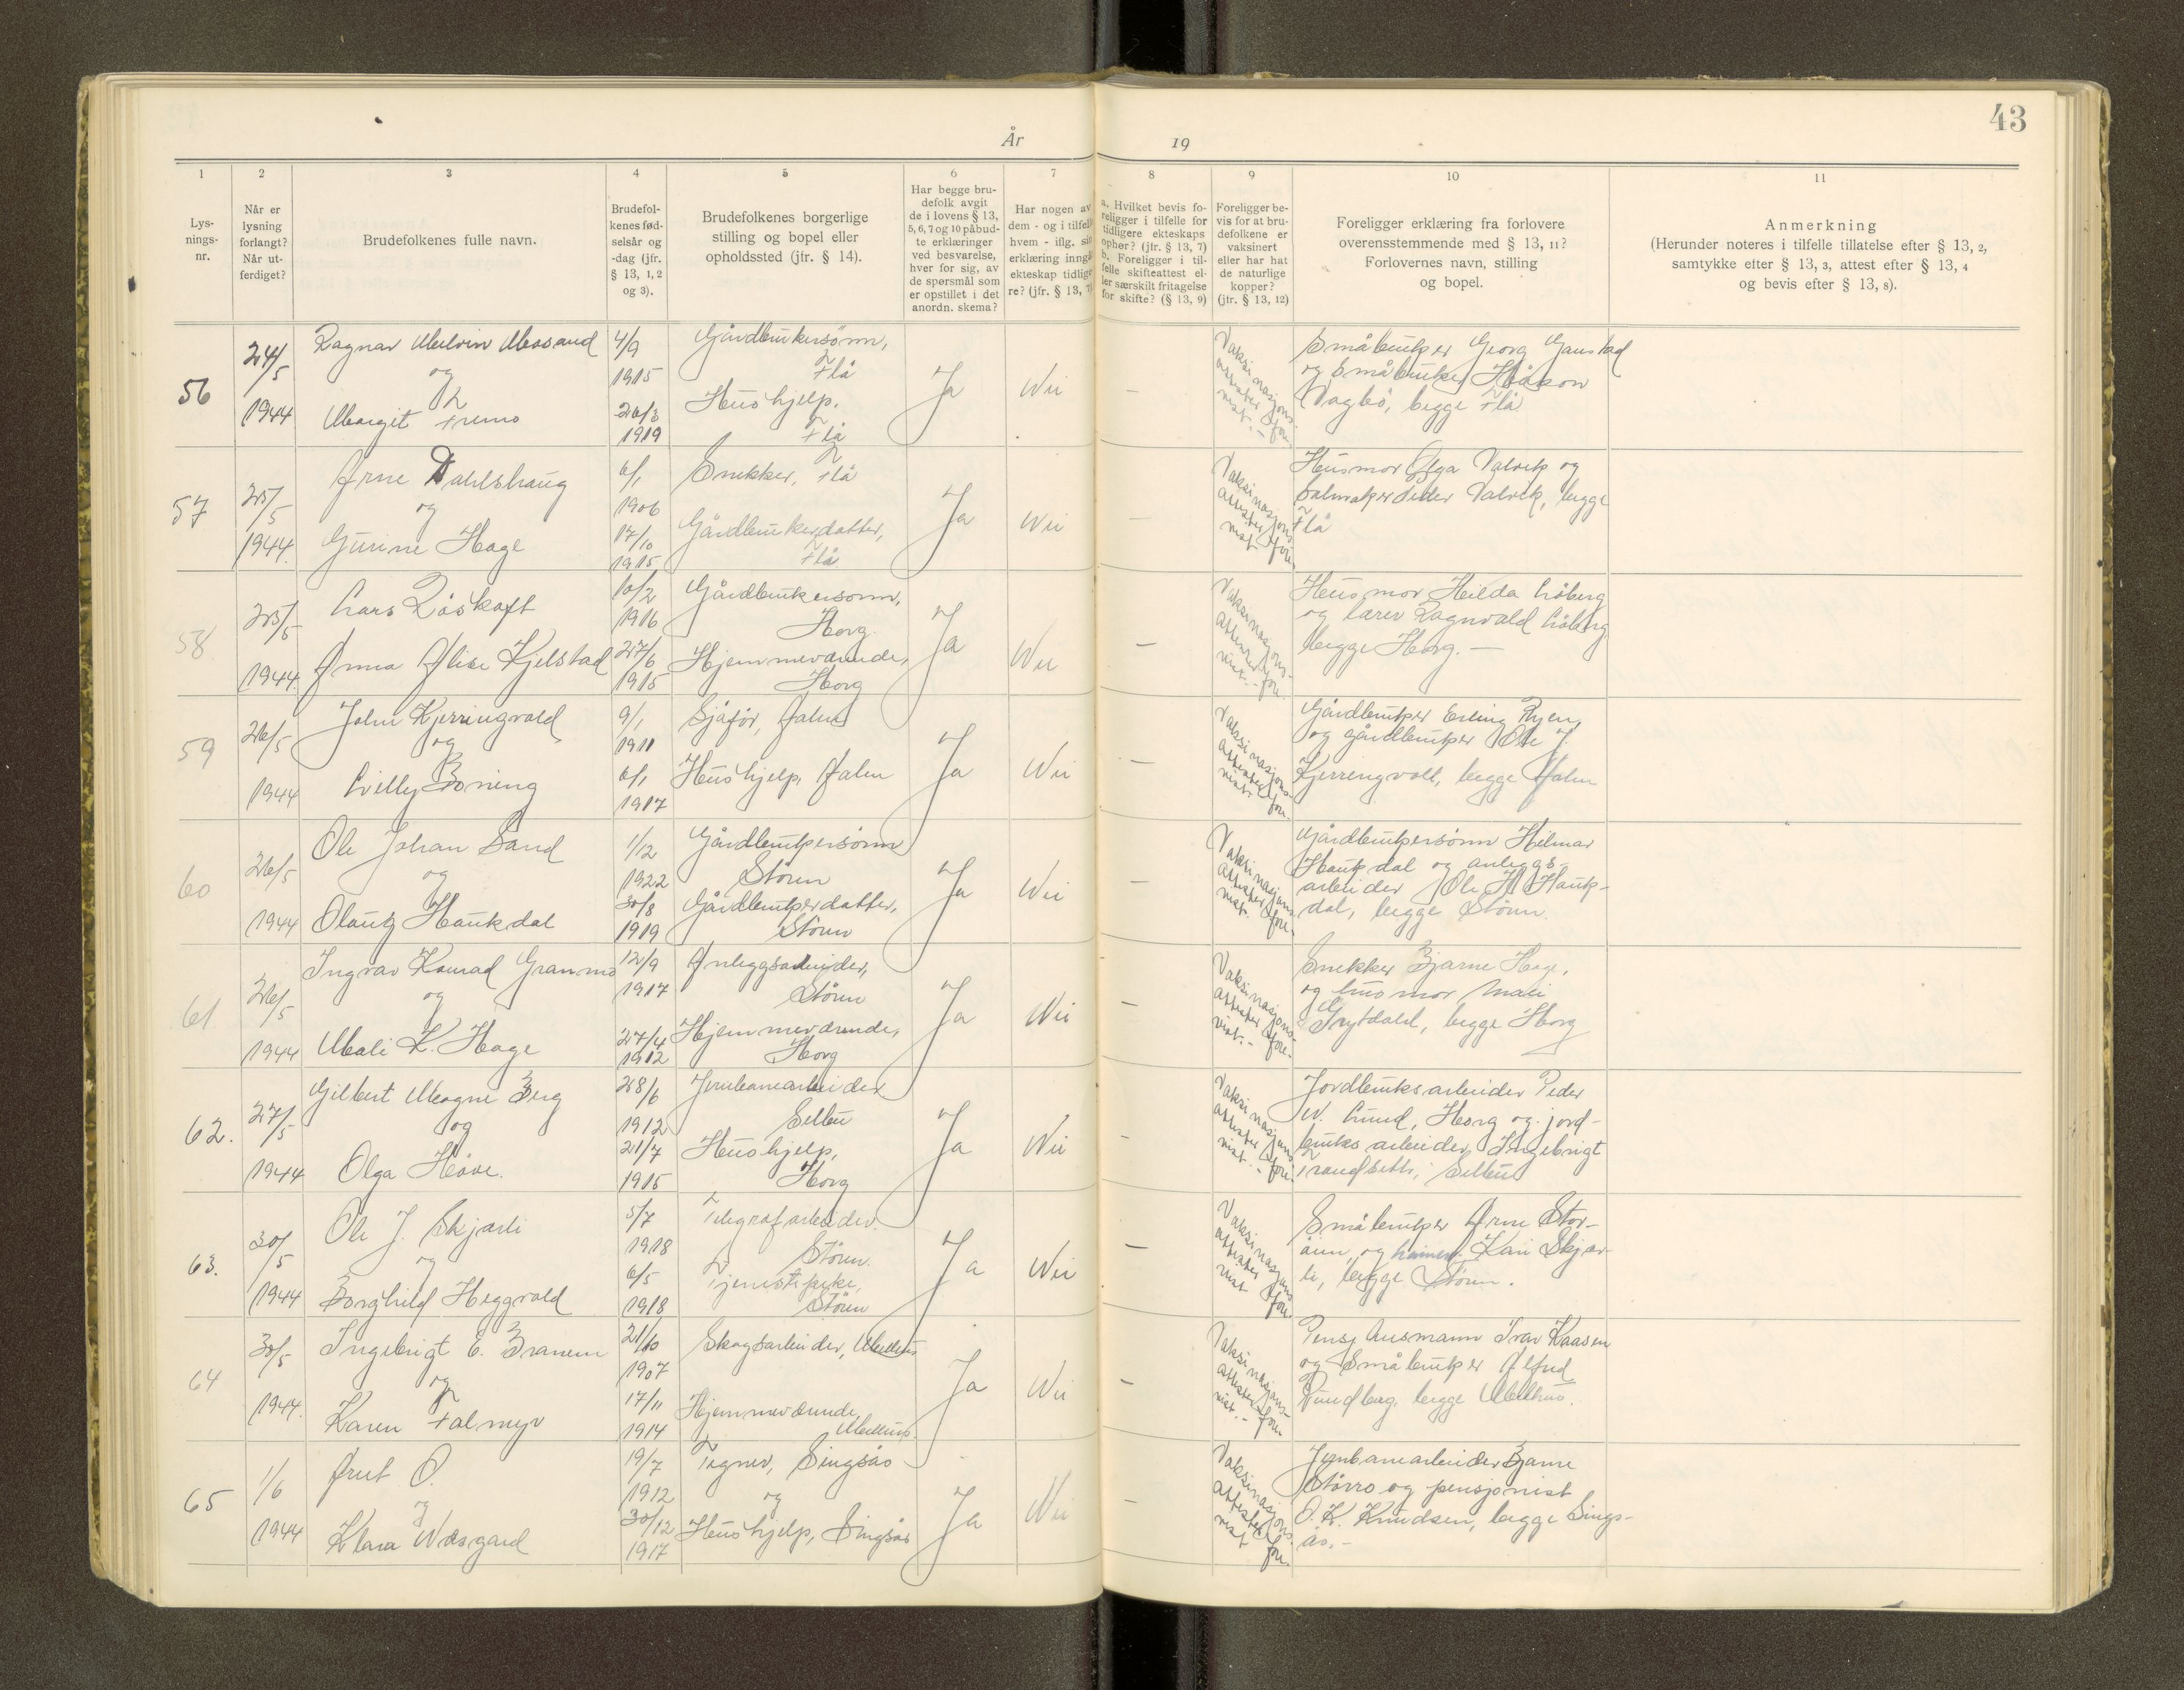 43
År 19
1 2 3 4 5 6 7 8 9 10 11
Lys-
nings-
nr.
Når er
lysning
forlangt?
Når ut-
ferdiget?
Brudefolkenes fulle navn.
Brudefol-
kenes fød-
selsår og
-dag (jfr.
§ 13, 1, 2
og 3).
Brudefolkenes borgerlige
stilling og bopel eller
opholdssted (jfr. § 14).
Har begge bru-
defolk avgit
de i lovens § 13,
5, 6, 7 og 10 påbud-
te erklæringer
ved besvarelse,
hver for sig, av
de spørsmål som
er opstillet i det
anordn. skema?
Har nogen av
dem - og i tilfelle
hvem - iflg. sin
erklæring inngå
ekteskap tidlige-
re? (jfr. § 13, 7)
a. Hvilket bevis fo-
religger i tilfelle for
tidligere ekteskaps
ophør? (jfr. § 13, 7)
b. Foreligger i til-
felle skifteattest el-
ler særskilt fritagelse
for skifte? (§ 13, 9)
Foreligger be-
vis for at bru-
defolkene er
vaksinert
eller har hat
de naturlige
kopper?
(jfr. § 13, 12)
Foreligger erklæring fra forlovere
overensstemmende med § 13, 11?
Forlovernes navn, stilling
og bopel.
Anmerkning
(Herunder noteres i tilfelle tillatelse efter § 13, 2,
samtykke efter § 13, 3, attest efter § 13, 4
og bevis efter § 13, 8).
56
24/5
1944
Ragnar Melvin Mosand
og
Margit Fremo
4/9
1915
26/3
1919
Gårdbrukersønn,
Flå
Hushjelp,
Flå
Ja
Nei
—
Vaksinasjons-
attester fore-
vist. -
Småbruker Georg Gaustad
og småbruker Håkon
Vagbö, begge Flå
57
25/5
1944.
Arne Dahlshaug
og
Gurine Hage
6/1
1906
17/10
1915
Snekker, Flå
Gårdbrukerdatter,
Flå
Ja
Nei
—
Vaksinasjons
attester fore
vist
Husmor Olga Valvik og
salmaker Peder Valvik, begge
Flå
58
25/5
1944.
Lars Råskaft
Anna Alise Kjelstad
10/2
1916
27/6
1915
Gårdbrukersønn,
Horg.
Hjemmeværende,
Horg
Ja
Nei
—
Vaksinasjons-
attester fore-
vist. -
Husmor Hilda Löberg
og lærer Ragnvald Löberg
begge Horg. —
59
26/5
1944
John Kjerringvold
og
Lilly Boning
9/1
1911
6/1
1917
Sjåför, Hölen
Hushjelp, Hölen
Ja
Nei
—
Vaksinasjons-
attester fore-
vist.
Gårdbruker Erling Ryen,
og gårdbruker Ole J.
Kjerringvoll, begge
60
26/5
1944
Ole Johan Sand
og
Olaug Haukdal
1/2
1922
30/8
1919
Gårdbrukersønn
Stören
Gårdbrukerdatter,
Stören
Ja
Nei
—
Vaksinasjons
attester fore-
vist.
Gårdbrukersönn Hilmar
Haukdal og anleggs-
arbeider Ole H. Hauk-
dal, begge Stören.
61
26/5
1944
Ingvar Konrad Granmo
og
Mali K. Hage
12/9
1917
27/4
1912
Anleggsarbeider,
Stören
Hjemmeværende,
Horg
Ja
Nei
—
Vaksinasjons-
attester fore-
vist. -
Snekker Bjarne Hage,
og husmor Mali
Grytdahl, begge Horg
62.
27/5
1944
Gilbert Magne Berg
og
Olga Høve.
28/6
1912
21/7
1915
Jernbanearbeider
Selbu
Hushjelp,
Horg
Ja
Nei
-
Vaksinasjons
attester fore-
vist. -
Jordbruksarbeider Peder
N. Lund, Horg og jord-
bruksarbeider Ingebrigt
Trandsetli, Selbu
63.
30/5
1944
Ole J. Skjærli
og
Borghild Heggvold
5/7
1918
6/5
1918
Telegrafarbeider.
Stören.
Tjenestepike,
Stören
Ja
Nei
—
Vaksinasjons
attester fore-
vist
Småbruker Arne Stor-
öun, og Kari Skjær-
li, begge Stören.
64
30/5
1944.
Ingebrigt E. Branem
og
Karen Falmyr
21/10
1907
17/11
1914
Skogsarbeider, Melhus
Hjemmeværende,
Melhus.
Ja
Nei
—
Vaksinasjons-
attester fore-
vist. -
Pensj. Ivar Kaasen
og Småbruker Alfred
Rundberg, begge Melhus.
65
1/6
1944
Arut O.
og
Klara Wæsgard
19/7
1912
30/12
1917
Tegner, Singsås
og
Hushjelp, Singsås
Ja
Nei
—
Vaksinasjons
attester fore-
vist
Jernbanearbeider Bjarne
Størro og pensjonist
O. K. Knudsen, begge Sings-
ås. -